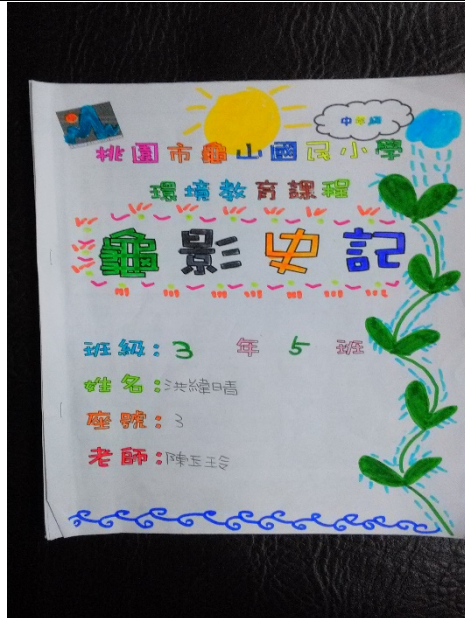 中年級
桃園市龜山國民小學
環境教育課程
龜影史記
班級：3 年 5 班
姓名：洪緯晴
座號：3
老師：陳玉玲